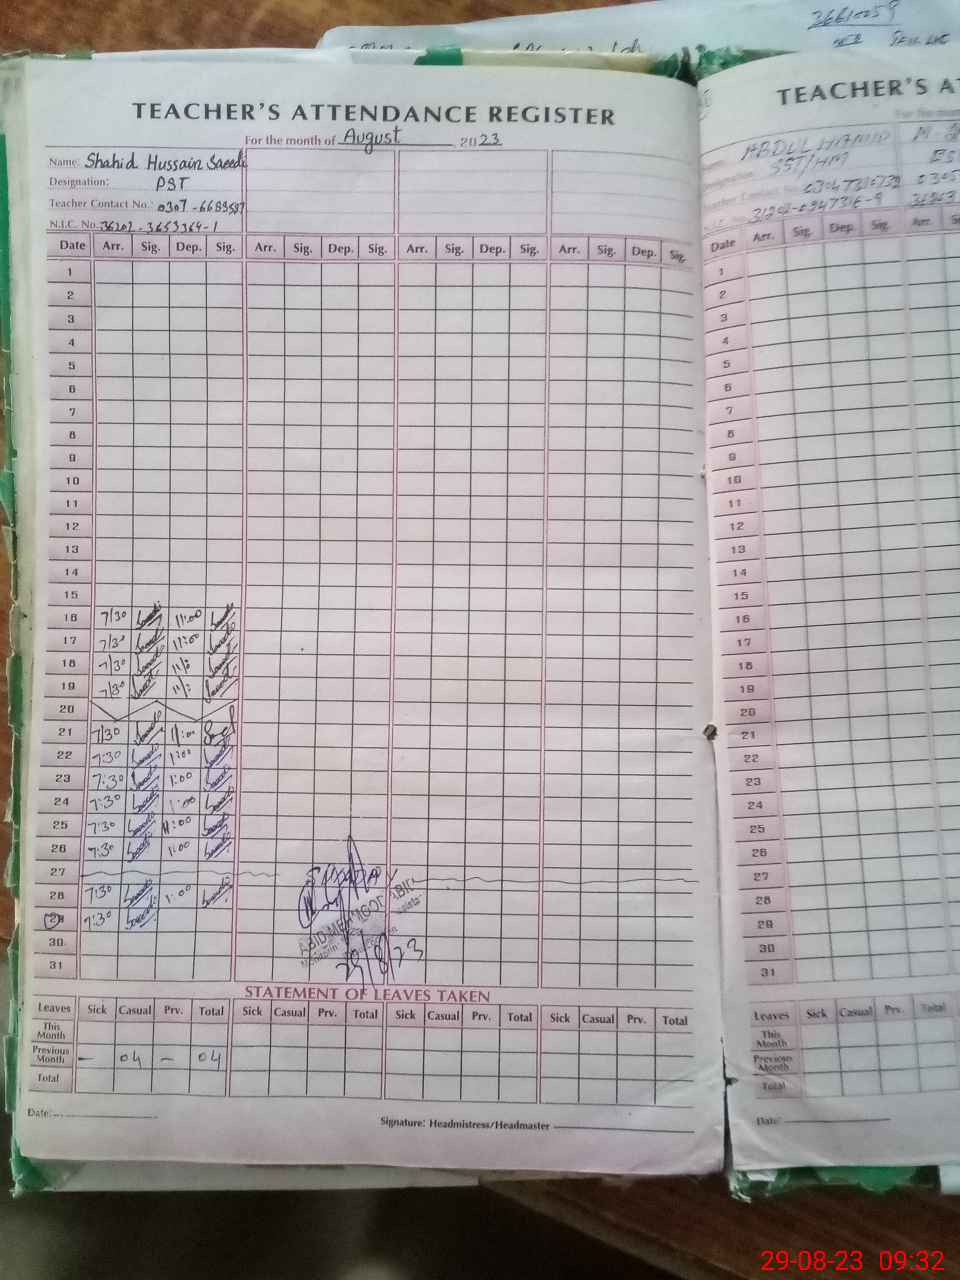 36610059
TEACHER'S ATTENDANCE REGISTER
For the month of August 2023
Name: Shahid Hussain Saeedi
Designation: PST
Teacher Contact No.: 0307-6683587
N.I.C. No. 36202-3653364-1
Date Arr. Sig. Dep. Sig. Arr. Sig. Dep. Sig. Arr. Sig. Dep. Sig. Arr. Sig. Dep. Sig.
1
2
3
4
5
6
7
8
9
10
11
12
13
14
15
16 7/30 11:00
17 7/30 11:00
18 7/30 11/:
19 7/30 11/:
20
21 7/30 11:00
22 7:30 1:00
23 7:30 1:00
24 7:30 1:00
25 7:30 11:00
26 7:30 1:00
27
28 7:30 1:00
29 7:30
30
31
29/8/23
STATEMENT OF LEAVES TAKEN
Leaves Sick Casual Prv. Total Sick Casual Prv. Total Sick Casual Prv. Total Sick Casual Prv. Total
This Month
Previous Month — 04 — 04
Total
Date:
Signature: Headmistress/Headmaster
TEACHER'S AT
For the mo
ABDUL HAMID
SST/HM
Date Arr. Sig. Dep. Sig. Arr.
1
2
3
4
5
6
7
8
9
10
11
12
13
14
15
16
17
18
19
20
21
22
23
24
25
26
27
28
29
30
31
Leaves Sick Casual Prv. Total
This Month
Previous Month
Total
Date:
29-08-23 09:32